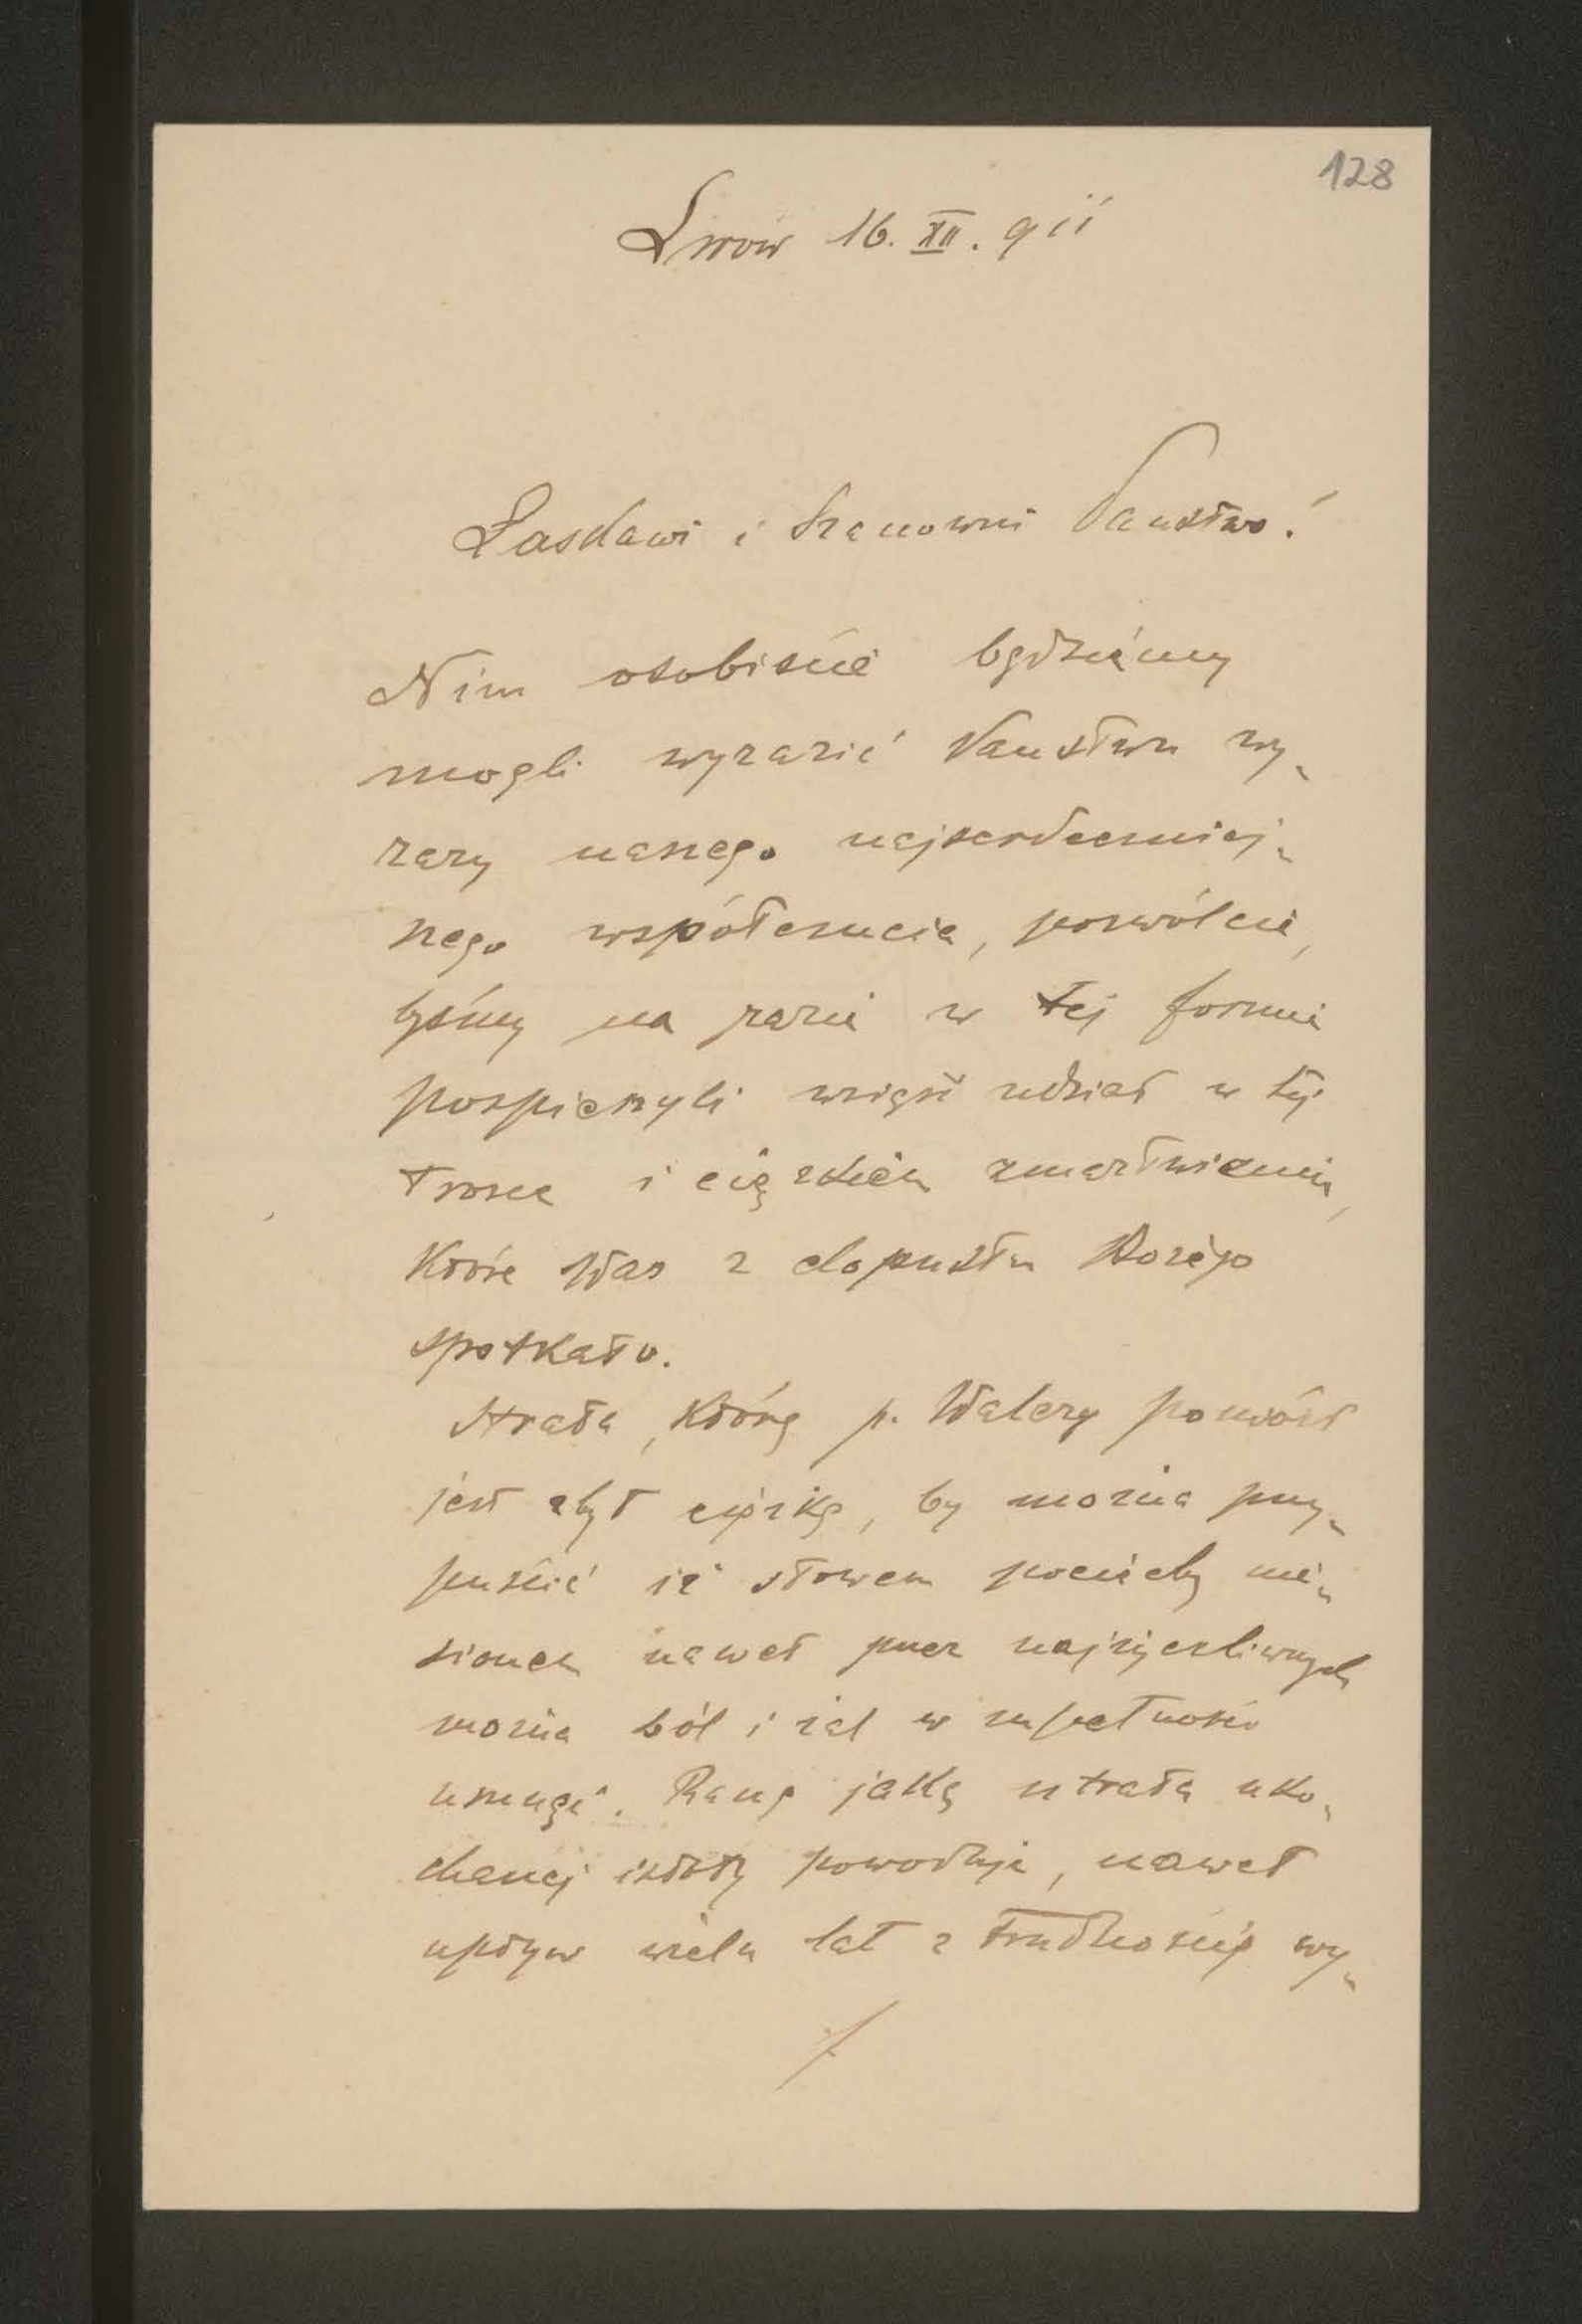 128
Lwów 16. XII. 911
Łaskawi i Szanowni Państwo!
Nim osobiście będziemy
mogli wyrazić Państwu wy-
razy naszego najserdeczniej-
szego współczucia, pozwólcie,
byśmy na razie w tej formie
pospieszyli wziąść udział w tej
trosce i ciężkiem zmartwieniu,
które Was z dopustu Bożego
spotkało.
Strata, którą p. Walery poniósł
jest zbyt ciężką, by można przy-
puścić iż słowem pociechy nie-
sionem nawet przez najżyczliwszych
można ból i żal w zupełności
usunąć. Ranę jaką utrata uko-
chanej istoty powoduje, nawet
upływ wielu lat z trudnością wy-